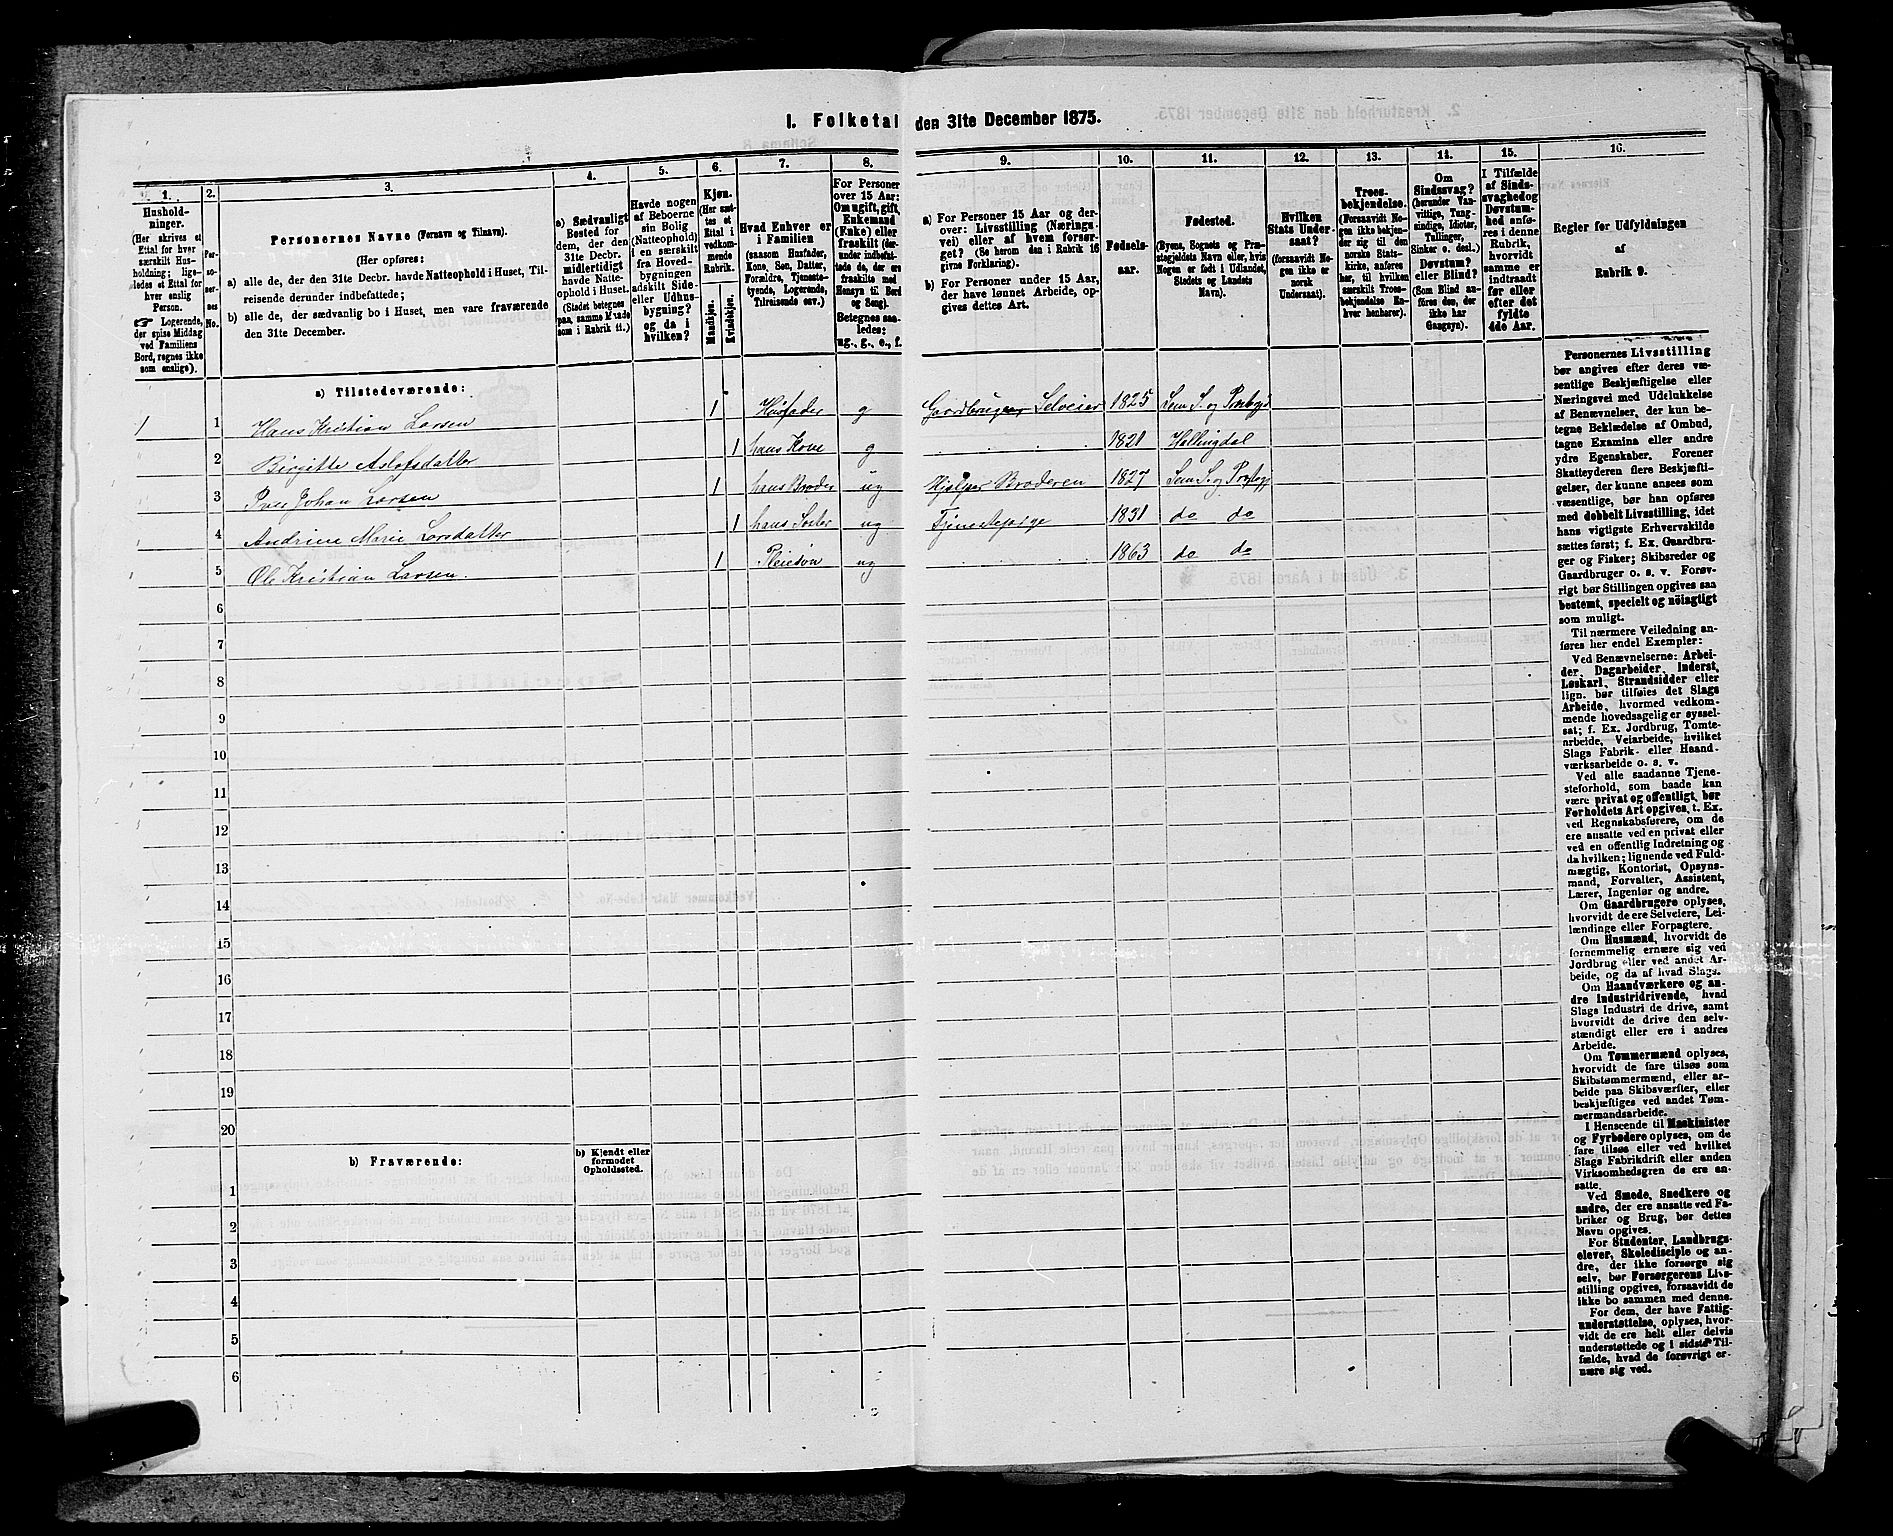 1. Folketal den 31te December 1875.
1.
2.
3.
4.
5.
6.
7.
8.
9.
10.
11.
12.
13.
14.
15.
16.
Hushold-
ninger.
(Her skrives et
Ettal for hver
særskilt Hus-
holdning; lige-
ledes et Ettal for
hver enslig
Person.
☞ Logerende,
der spise Middag
ved Familiens
Bord, regnes ikke
som enslige).
Per-
so-
ner-
nes
No.
Personernes Navne (Fornavn og Tilnavn).
(Her opføres:
a) alle de, der den 31te Decbr. havde Natteophold i Huset, Til-
reisende derunder indbefattede;
b) alle de, der sædvanlig bo i Huset, men vare fraværende
den 31te December.
a) Sædvanligt
Bosted for
dem, der den
31te Decbr.
midlertidigt
havde Natte-
ophold i Huset.
(Stedet betegnes
paa samme Maade
som i Rubrik 11.)
Havde nogen
af Beboerne
sin Bolig
(Natteophold)
i en særskilt
fra Hoved-
bygningen
adskilt Side-
eller Udhus-
bygning?
og da i
hvilken?
Kjøn.
(Her sæt-
tes et
Ettal i
vedkom-
mende
Rubrik.
Mandkjøn.
Kvindekjøn.
Hvad Enhver er
i Familien
(saasom Husfader,
Kone, Søn, Datter,
Forældre, Tjeneste-
tyende, Logerende,
Tilreisende osv.)
For Personer
over 15 Aar:
Om ugift, gift,
Enkemand
(Enke) eller
fraskilt (der-
under indbefat-
tede de, der ere
fraskilte med
Hensyn til Bord
og Seng).
Betegnes saa-
ledes:
ug., g., e., f.
a) For Personer 15 Aar og der-
over: Livsstilling (Nærings-
vei) eller af hvem forsør-
get? (Se herom den i Rubrik 16
givne Forklaring).
b) For Personer under 15 Aar,
der have lønnet Arbeide, op-
gives dettes Art.
Fødsels-
aar.
Fødested.
(Byens, Sognets og Præ-
stegjeldets Navn eller, hvis
Nogen er født i Udlandet,
Stedets og Landets
Navn).
Hvilken
Stats Under-
saat?
(forsaavidt No-
gen ikke er
norsk
Undersaat).
Troes-
bekjendelse.
(Forsaavidt No-
gen ikke bekjen-
der sig til den
norske Stats-
kirke, anføres
her, til hvilken
særskilt Troes-
bekjendelse En-
hver henhører).
Om
Sindssvag?
(herunder Van-
vittige, Tung-
sindige, Idioter,
Tullinger,
Sinker o. desl.)
Døvstum?
eller Blind?
(Som Blind an-
føres den, der
ikke har
Gangsyn).
I Tilfælde
af Sinds-
svaghed og
Døvstum-
hed anfø-
res i denne
Rubrik,
hvorvidt
samme er
indtraadt
før eller
efter det
fyldte
4de Aar.
Regler for Udfyldningen
af
Rubrik 9.
a) Tilstedeværende:
1 1 Hans Kristian Larsen 1 Husfader g Gaardbruger Selveier 1825 Sem S. og Prstgj
2 Birgitte Aslofsdatter 1 hans Kone g 1821 Hallingdal
3 Iver Johan Larsen 1 hans Broder ug Hjelper Broderen 1827 Sem S. og Prstgj
4 Andrine Marie Larsdatter 1 hans Søster ug Tjenestepige 1831 do do
5 Ole Kristian Larsen. 1 Pleiesøn ug 1863 do do
6
7
8
9
10
11
12
13
14
15
16
17
18
19
20
b) Fraværende:
b) Kjendt eller
formodet
Opholdssted.
1
2
3
4
5
6
Personernes Livsstilling
bør angives efter deres væ-
sentlige Beskjæftigelse eller
Næringsvei med Udelukkelse
af Benævnelser, der kun be-
tegne Beklædelse af Ombud,
tagne Examina eller andre
ydre Egenskaber. Forener
Skatteyderen flere Beskjæfti-
gelser, der kunne ansees som
væsentlige, bør han opføres
med dobbelt Livsstilling, idet
hans vigtigste Erhvervskilde
sættes først; f. Ex. Gaardbru-
ger og Fisker; Skibsreder og
Gaardbruger o. s. v. Forøv-
rigt bør Stillingen opgives saa
bestemt, specielt og nøiagtigt
som muligt.
Til nærmere Veiledning an-
føres her endel Exempler:
Ved Benævnelserne: Arbei-
der, Dagarbeider, Inderst,
Løskarl, Strandsidder eller
lign. bør tilføies det Slags
Arbeide, hvormed vedkom-
mende hovedsagelig er syssel-
sat; f. Ex. Jordbrug, Tomte-
arbeide, Veiarbeide, hvilket
Slags Fabrik- eller Haand-
værksarbeide o. s. v.
Ved alle saadanne Tjene-
steforhold, som baade kan
være privat og offentligt, bør
Forholdets Art opgives, t. Ex.
ved Regnskabsførere, om de
ere ansatte ved en privat eller
ved en offentlig Indretning og
da hvilken; lignende ved Fuld-
mægtig, Kontorist, Opsyns-
mand, Forvalter, Assistent,
Lærer, Ingeniør og andre.
Om Gaardbrugere oplyses,
hvorvidt de ere Selveiere, Lei-
lændinge eller Forpagtere.
Om Husmænd, hvorvidt de
fornemmelig ernære sig ved
Jordbrug eller ved andet Ar-
beide, og da af hvad Slags.
Om Haandværkere og an-
dre Industridrivende, hvad
Slags Industri de drive, samt
hvorvidt de drive den selv-
stændigt eller ere i andres
Arbeide.
Om Tømmermænd oplyses,
hvorvidt de fare tilsøs som
Skibstømmermænd, eller ar-
beide paa Skibsværfter, eller
beskjæftiges ved andet Tøm-
mermandsarbeide.
I Henseende til Maskinister
og Fyrbødere oplyses, om de
fare tilsøs eller ved hvilket
Slags Fabrikdrift eller anden
Virksomhedsgren de ere an-
satte.
Ved Smede, Snedkere og
andre, der ere ansatte ved Fa-
briker og Brug, bør dettes
Navn opgives.
For Studenter, Landbrugs-
elever, Skoledisciple og an-
dre, der ikke forsørge sig
selv, bør Forsørgerens Livs-
stilling opgives, forsaavidt de
ikke bo sammen med denne.
For dem, der have Fattig-
understøttelse, oplyses, hvor-
vidt de ere helt eller delvis
understøttede og i sidste Til-
fælde, hvad de forøvrigt er-
nære sig ved.